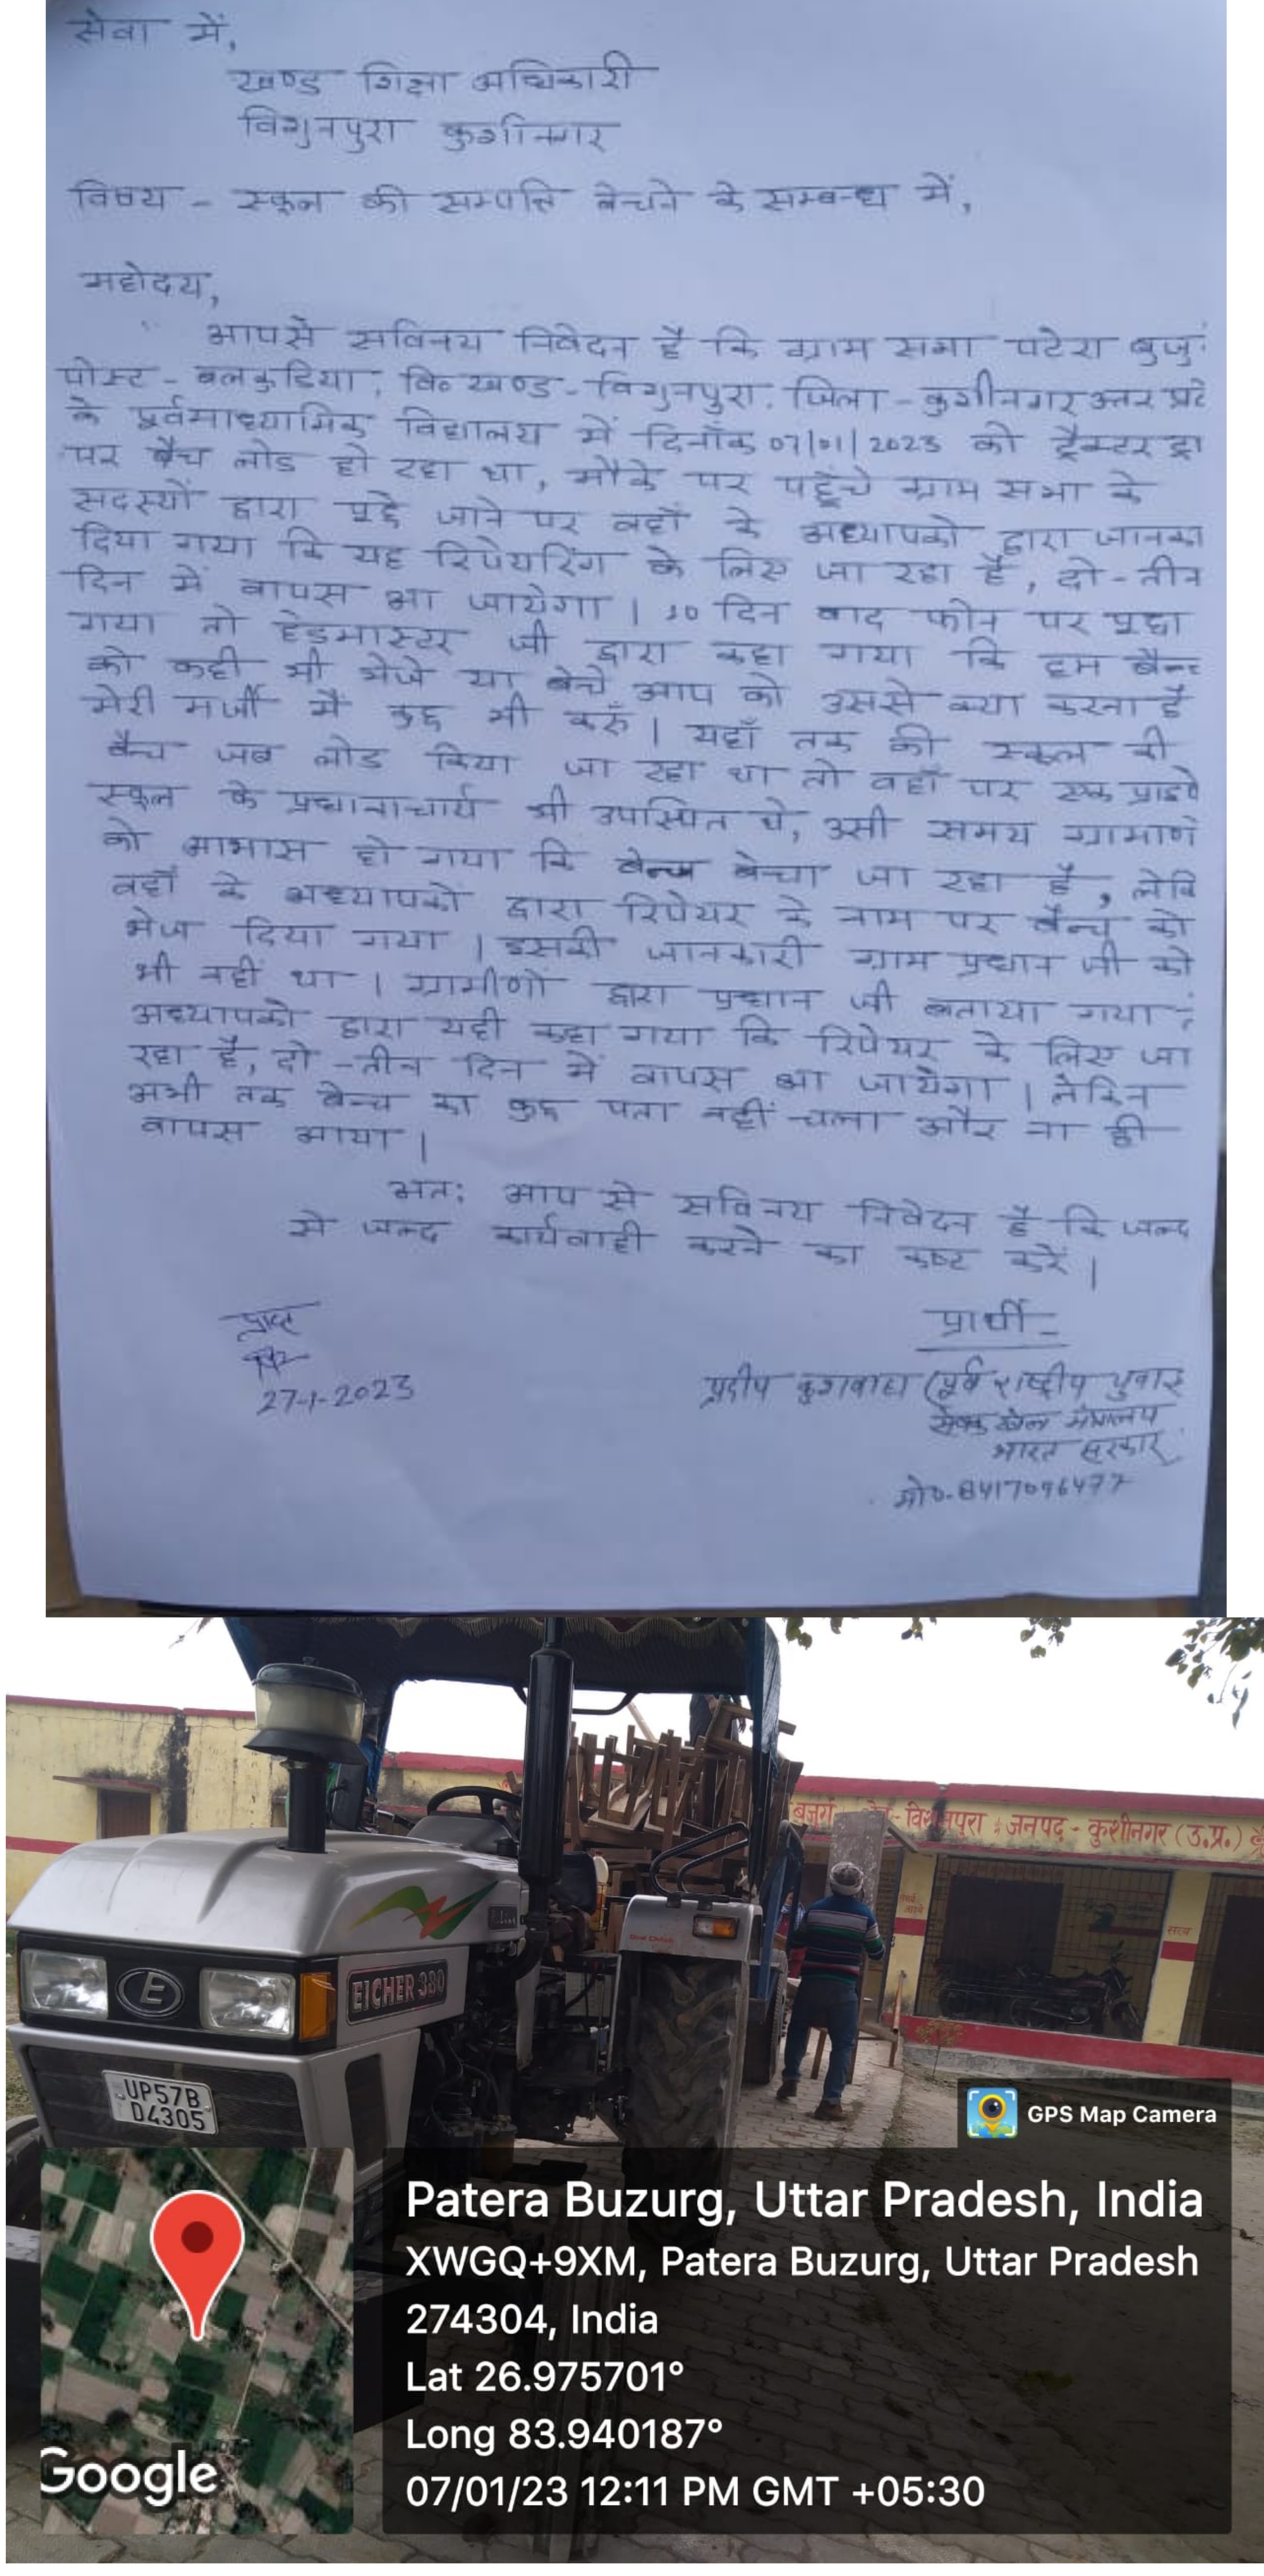 सेवा में,
खण्ड शिक्षा अधिकारी
विशुनपुरा कुशीनगर
विषय - स्कूल की सम्पत्ति बेचने के सम्बन्ध में,
महोदय,
आपसे सविनय निवेदन है कि ग्राम सभा पटेरा बुजु
पोस्ट - बलकुडिया, वि० खण्ड - विशुनपुरा, जिला - कुशीनगर उत्तर प्रदे
के पूर्वमाध्यामिक विद्यालय में दिनाँक 07/01/2023 को ट्रैक्टर ट्रा
पर बैंच लोड हो रहा था, मौके पर पहूँचे ग्राम सभा के
सदस्यों द्वारा पूछे जाने पर वहाँ के अध्यापको द्वारा जानका
दिया गया कि यह रिपेयरिंग के लिए जा रहा है, दो - तीन
दिन में वापस आ जायेगा । 10 दिन बाद फोन पर पूछा
गया तो हेडमास्टर जी द्वारा कहा गया कि हम बैन्च
को कही भी भेजे या बेचे आप को उससे क्या करना है
मेरी मर्जी मै कुछ भी करुँ । यहाँ तक की स्कूल की
बैन्च जब लोड किया जा रहा था तो वहाँ पर एक प्राइवे
स्कूल के प्रधानाचार्य भी उपस्थित थे, उसी समय ग्रामीणो
को आभास हो गया कि बेन्च बेचा जा रहा है, लेकि
वहाँ के अध्यापकों द्वारा रिपेयर के नाम पर बैन्च को
भेज दिया गया । इसकी जानकारी ग्राम प्रधान जी को
भी नहीं था । ग्रामीणों द्वारा प्रधान जी बताया गया
अध्यापको द्वारा यही कहा गया कि रिपेयर के लिए जा
रहा है, दो - तीन दिन में वापस आ जायेगा । लेकिन
अभी तक बेन्च का कुछ पता नहीं चला और ना ही
वापस आया ।
अतः आप से सविनय निवेदन है कि जल्द
से जल्द कार्यवाही करने का कष्ट करें ।
प्राप्त
27-1-2023
प्रार्थी -
प्रदीप कुशवाहा (पूर्व राष्ट्रीय युवा
सेवक खेल मंत्रालय
भारत सरकार
मो०-8417096477
बुजुर्ग क्षेत्र - विशुनपुरा जनपद - कुशीनगर (उ.प्र.)
सत्य
EICHER 380
E
UP57B
D4305
GPS Map Camera
Patera Buzurg, Uttar Pradesh, India
XWGQ+9XM, Patera Buzurg, Uttar Pradesh
274304, India
Lat 26.975701°
Long 83.940187°
07/01/23 12:11 PM GMT +05:30
Google